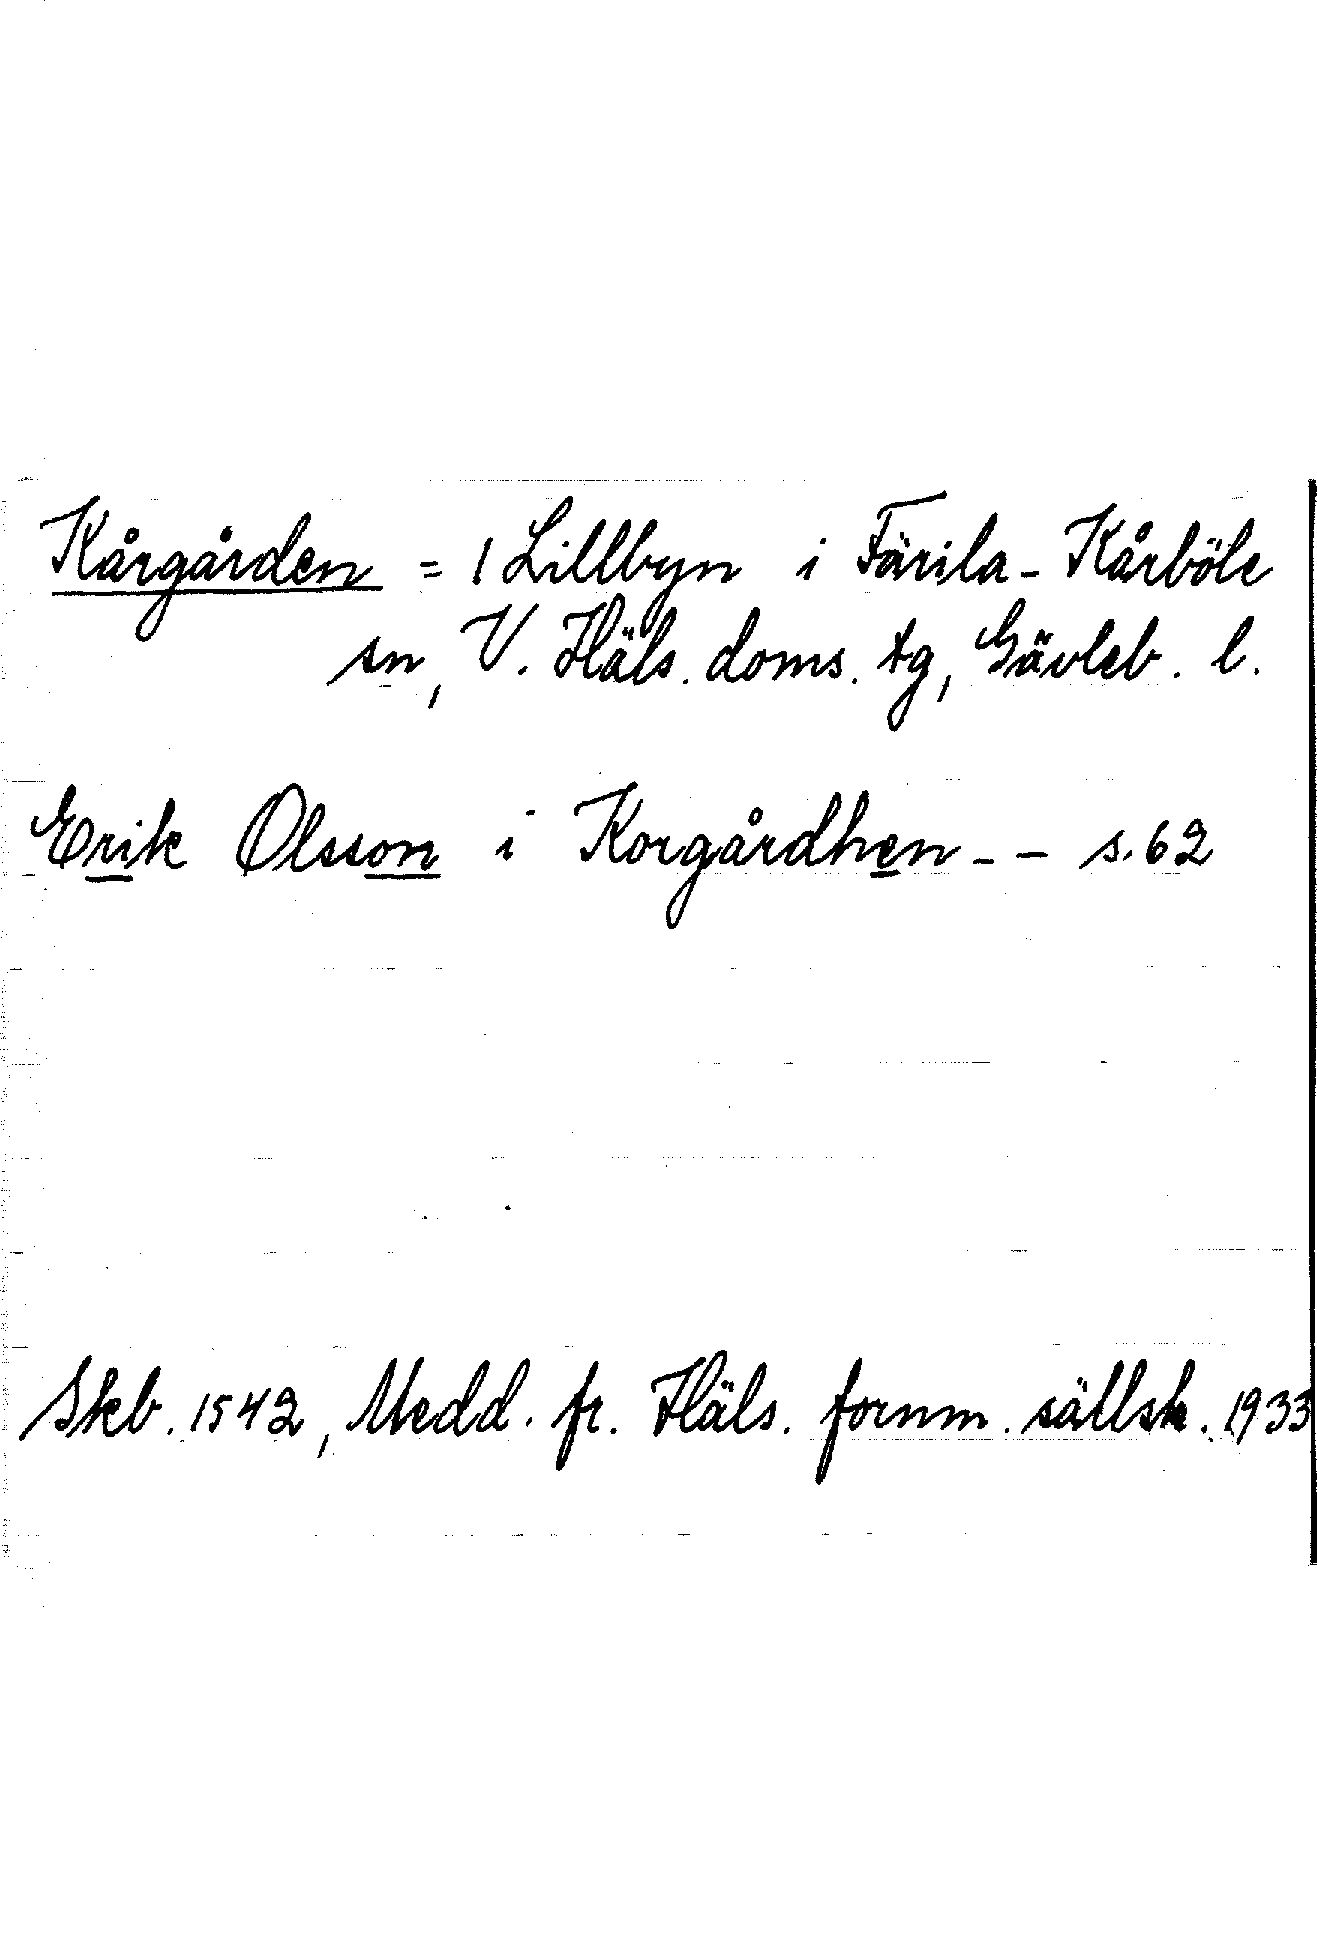 Kårgården = 1 Lillbyn i Färila-Kårböle
sn, V. Häls. doms. tg, Gävleb. l.
Erik Olsson i Korgårdhen - - s. 62
Skb. 1542, Medd. fr. Häls. fornm. sällsk. 1933